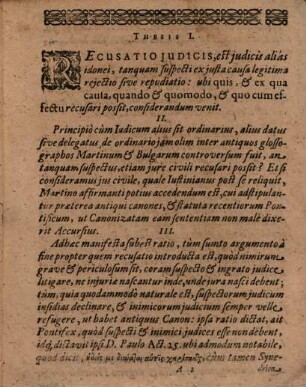 THESIS I.
RECUSATIO JUDICIS, est judicis aliàs
idonei, tanquam suspecti ex justa causa legitima
rejectio sive repudiatio: ubi quis, & ex qua
causa, quando & quomodo, & quo cum ef-
fectu recusari possit, considerandum venit.
II.
Principiò cùm Iudicum alius sit ordinarius, alius datus
sive delegatus, de ordinario jam olim inter antiquos glosso-
graphos Martinum & Bulgarum controversum fuit, an
tanquam suspectus, etiam jure civili recusari possit? Et si
consideramus jus civile, quale Iustinianus post se reliquit,
Martino affirmanti potius accedendum est, cui adstipulan-
tur præterea antiqui canones, & statuta recentiorum Pon-
tificum, ut Canonizatam eam sententiam non malè dixe-
rit Accursius.
III.
Adhæc manifesta subest ratio, tùm sumto argumento à
fine propter quem recusatio introducta est, quòd nimirum
grave & periculosum sit, coram suspecto & ingrato judice
litigare, ne injuriæ nascantur inde, unde jura nasci debent;
tùm, quia quodammodo naturale est, suspectorum judicum
insidias declinare, & inimicorum judicium semper velle
refugere, ut habet antiqui Canon: ipsa ratio dictat, ait
Pontifex, quòd suspecti & inimici judices esse non debent,
idq́; dictavit ipsi D. Paulo Act. 25. ubi admodum notabile,
quòd dicit, etsi tamen Syne-
A 2 drion